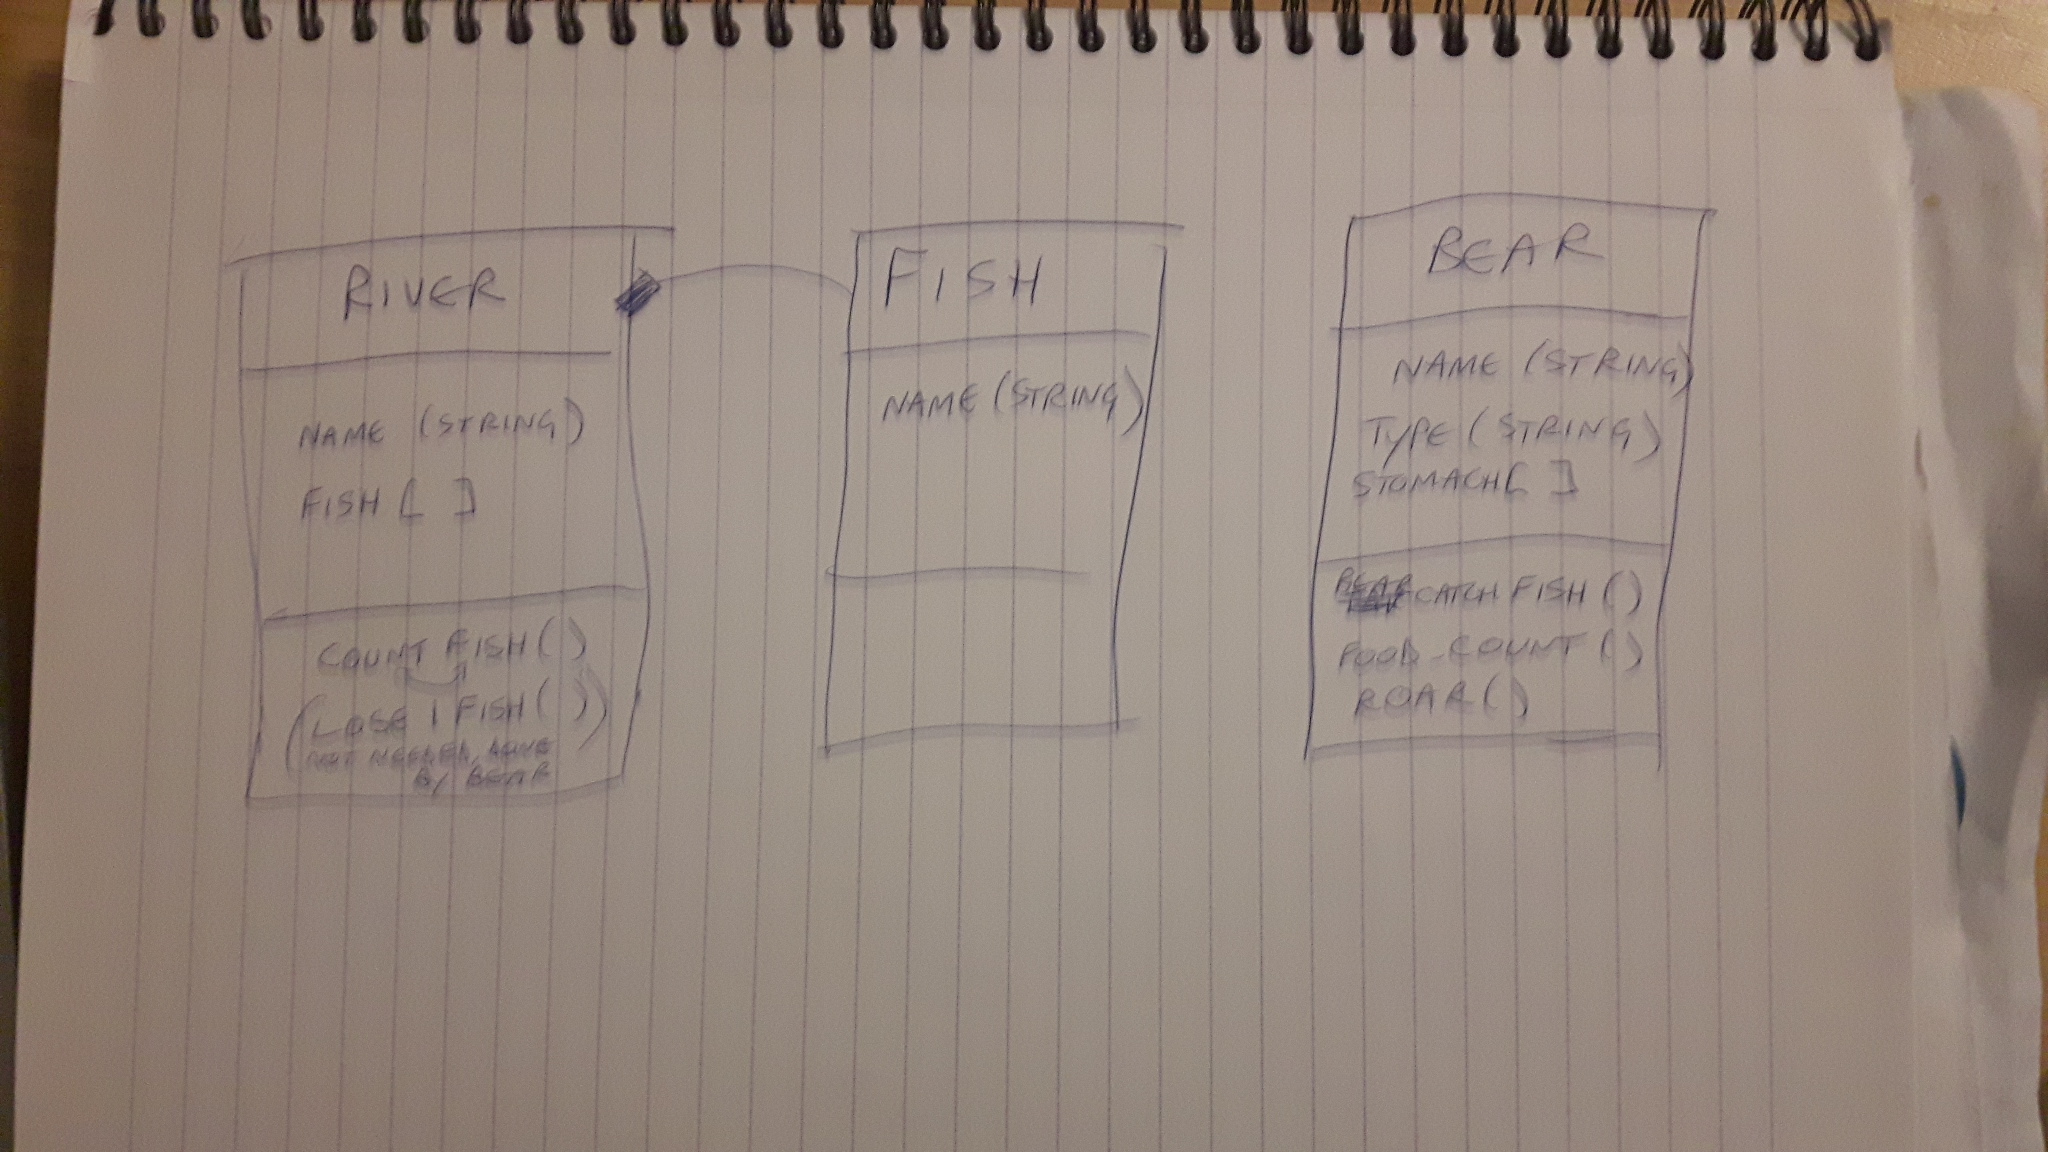 RIVER
NAME (STRING)
FISH [ ]
COUNT FISH ()
(LOSE 1 FISH ())
(NOT NEEDED, DONE
BY BEAR
FISH
NAME (STRING)
BEAR
NAME (STRING)
TYPE (STRING)
STOMACH [ ]
CATCH FISH ()
FOOD-COUNT ()
ROAR ()